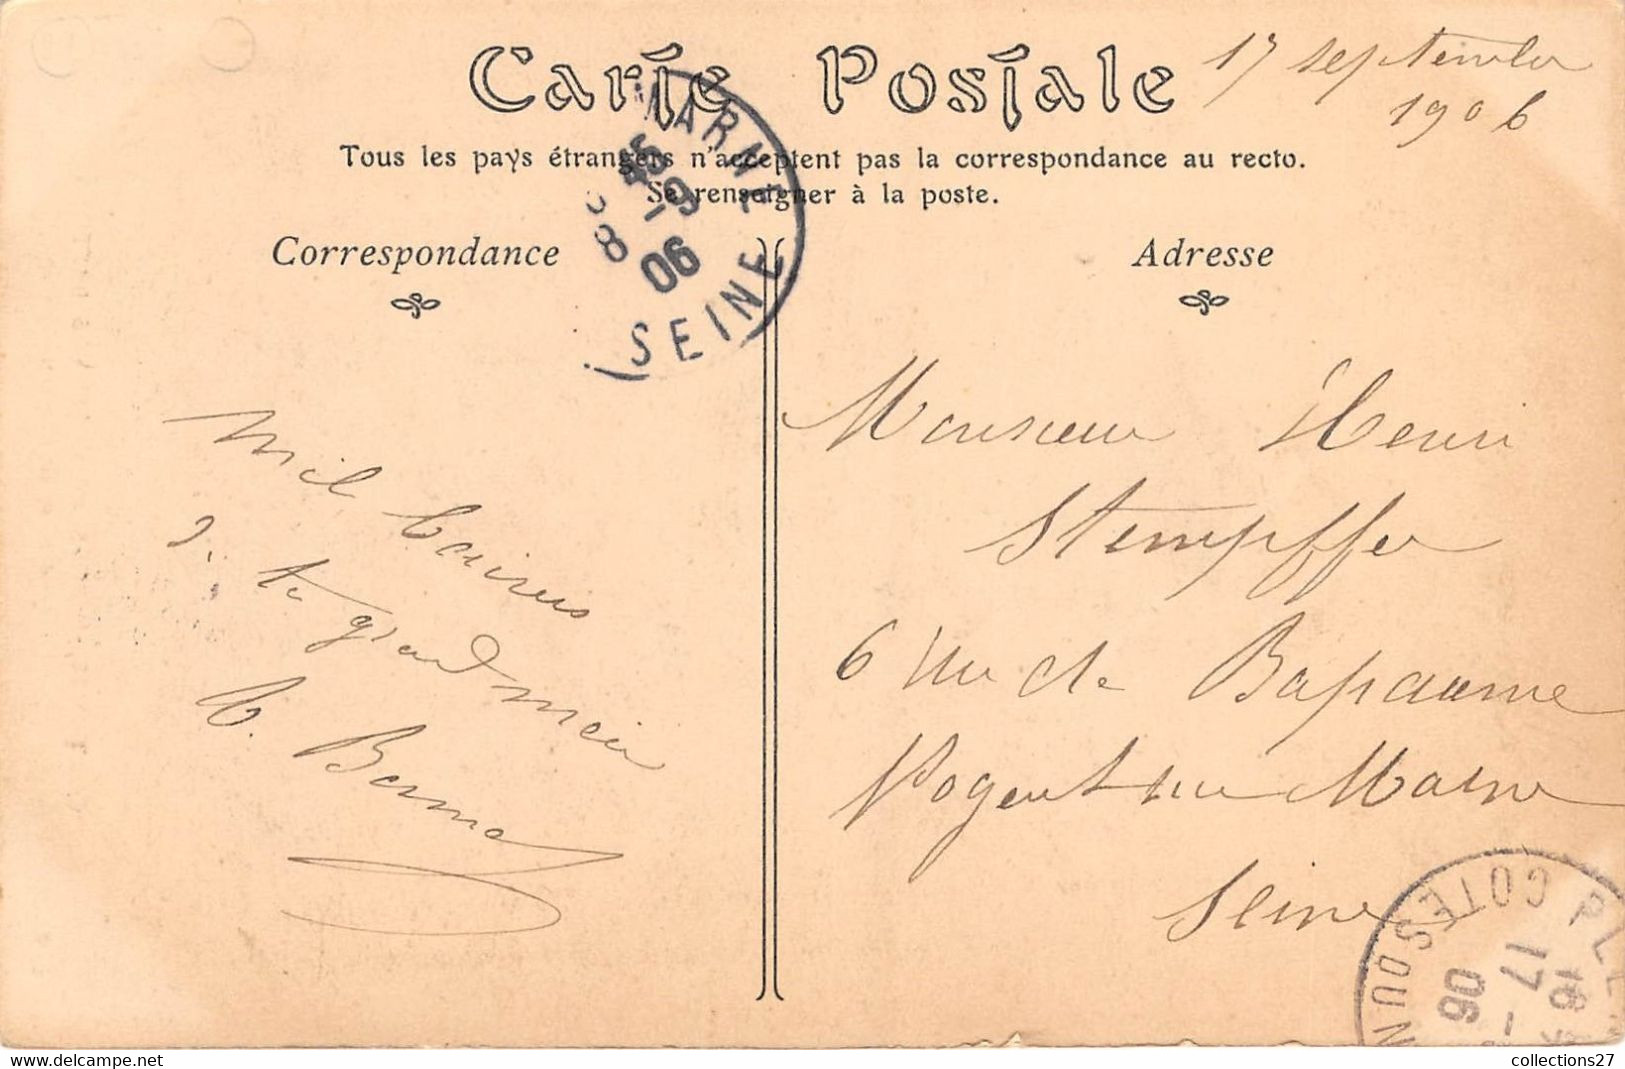 Carte Postale
17 septembre
1906
Tous les pays étrangers n'acceptent pas la correspondance au recto.
Se renseigner à la poste.
Correspondance
Adresse
MARNE
SEINE
06
Mil baisers
de ta grand mère
Monsieur Henri
Stempffer
6 rue de Bapaume
Nogent sur Marne
Seine
COTES DU N
17
06
collections27